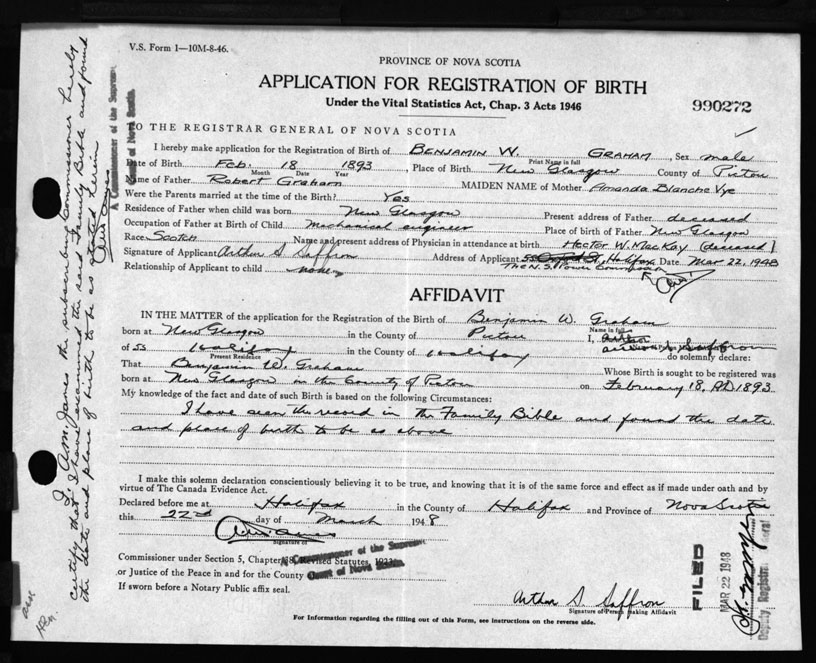 V.S. Form 1—10M-8-46.
PROVINCE OF NOVA SCOTIA
APPLICATION FOR REGISTRATION OF BIRTH
Under the Vital Statistics Act, Chap. 3 Acts 1946
990272
TO THE REGISTRAR GENERAL OF NOVA SCOTIA
I hereby make application for the Registration of Birth of BENJAMIN W. GRAHAM, Sex male
Print Name in full
Date of Birth Feb. 18 1893, Place of Birth New Glasgow County of Pictou
Month Date Year
Name of Father Robert Graham MAIDEN NAME of Mother Amanda Blanche Vye
Were the Parents married at the time of Birth? Yes
Residence of Father when child was born New Glasgow Present address of Father deceased
Occupation of Father at Birth of Child mechanical engineer Place of birth of Father New Glasgow
Race Scotch Name and present address of Physician in attendance at birth Hector W. MacKay (deceased)
Signature of Applicant Arthur S. Saffron Address of Applicant 55 St, Halifax Date Mar 22, 1948
The N.S. Power Commission
Relationship of Applicant to child none
AFFIDAVIT
IN THE MATTER of the application for the Registration of the Birth of Benjamin W. Graham
Name in full
born at New Glasgow in the County of Pictou I, Arthur S. Saffron
of 55 Halifax in the County of Halifax do solemnly declare:
Present Residence
That Benjamin W. Graham Whose Birth is sought to be registered was
born at New Glasgow in the County of Pictou on February 18, AD 1893
My knowledge of the fact and date of such Birth is based on the following Circumstances:
I have seen the record in the Family Bible and found the date
and place of birth to be as above
I make this solemn declaration conscientiously believing it to be true, and knowing that it is of the same force and effect as if made under oath and by
virtue of The Canada Evidence Act.
Declared before me at Halifax in the County of Halifax and Province of Nova Scotia
this 22nd day of March 1948
Signature of
Commissioner under Section 5, Chapter 8, Revised Statutes, 1923
A Commissioner of the Supreme
Court of Nova Scotia.
or Justice of the Peace in and for the County
If sworn before a Notary Public affix seal.
Arthur S. Saffron
Signature of Person making Affidavit
For Information regarding the filling out of this Form, see instructions on the reverse side.
FILED
MAR 22 1948
Deputy Registrar General
I, A.M. James the subscribing Commissioner hereby
certify that I have examined the said Family Bible and found
the date and place of birth to be as stated herein
A Commissioner of the Supreme
Court of Nova Scotia.